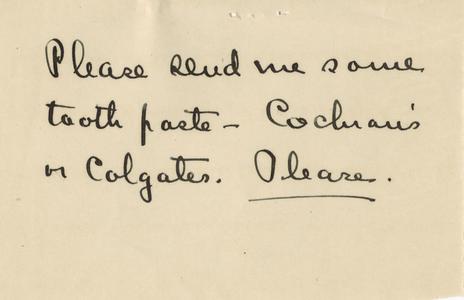 Please send me some
tooth paste – Cochran's
or Colgates. Please.